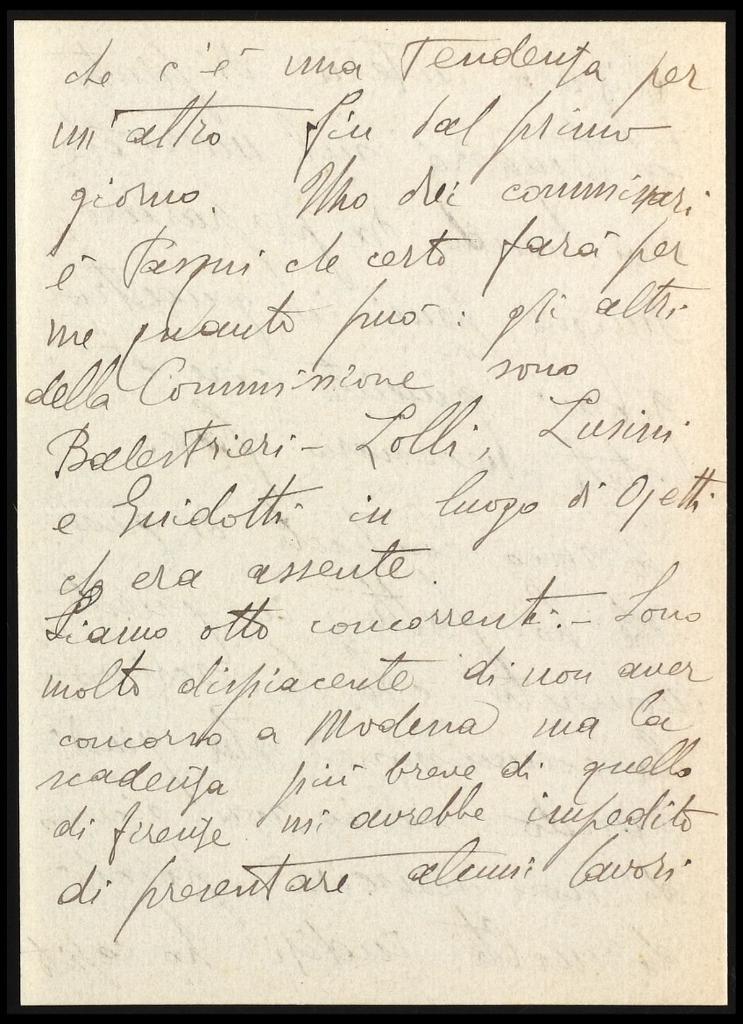 che c'è una Tendenza per
un'altro fin dal primo
giorno. Uno dei commissari
è che certo farà per
me quanto può: gli altri
della Commissione sono
Balestrieri - Lolli, Lusini
e Guidotti in luogo di Ojetti
ch era assente.
Siamo otto concorrenti. - Sono
molto dispiacente di non aver
concorso a Modena ma la
scadenza più breve di quello
di firenze mi avrebbe impedito
di presentare alcuni lavori